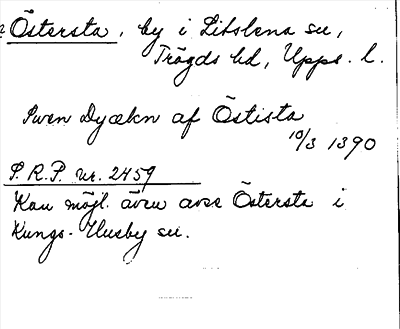 Östersta, by i Litslena sn,
Trögds hd, Upps. l.
Swen Dyækn af Östista
10/3 1390
S. R. P. nr. 2459
Kan möjl. även avse Östersta i
Kungs-Husby sn.